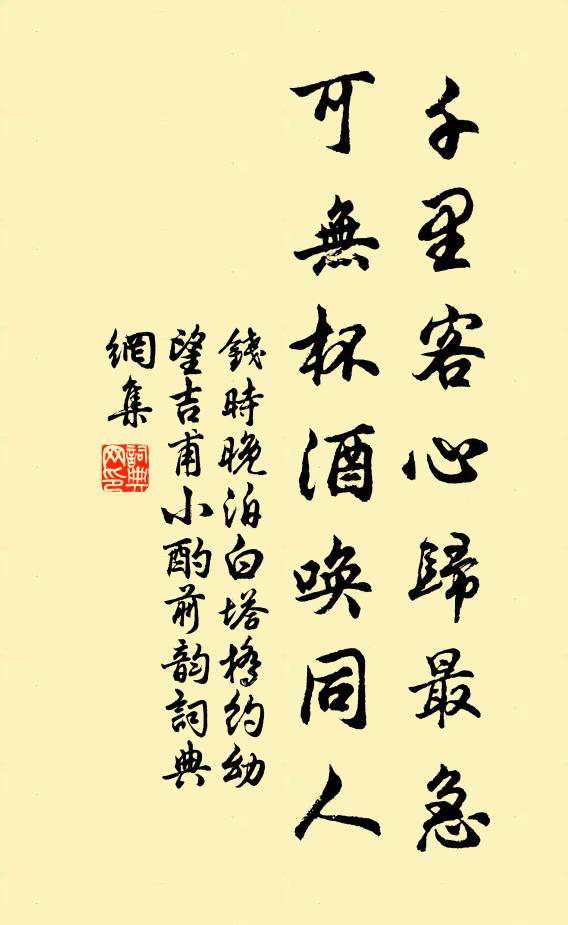 千里客心歸最急
可無杯酒喚同人
錢時晚泊白塔橋約幼
望吉甫小酌前韵詞典
網集
詞典
网印